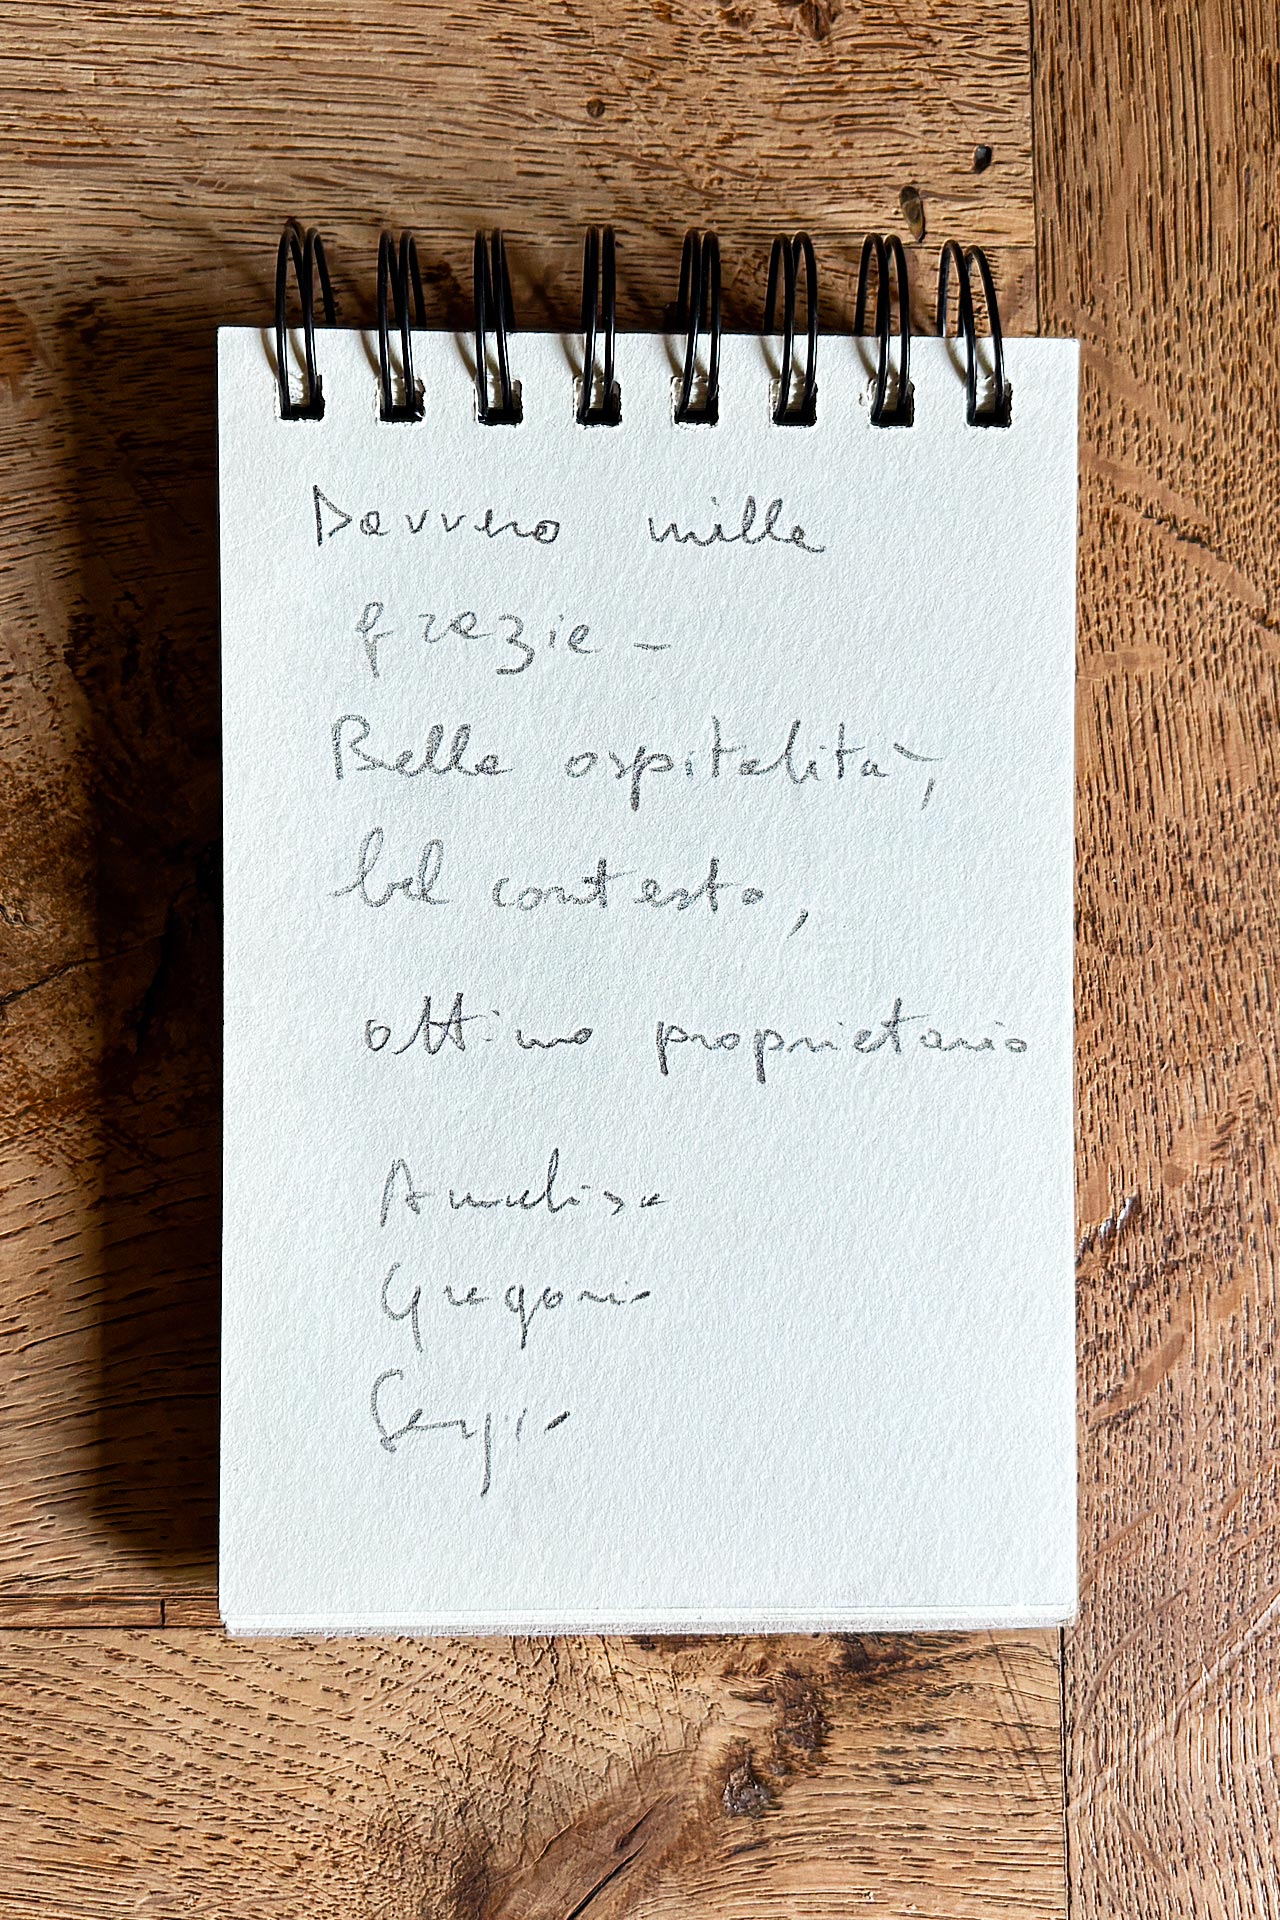 Davvero mille
grazie -
Bella ospitalità,
bel contesto,
ottimo proprietario
Annalisa
Gregorio
Sergio